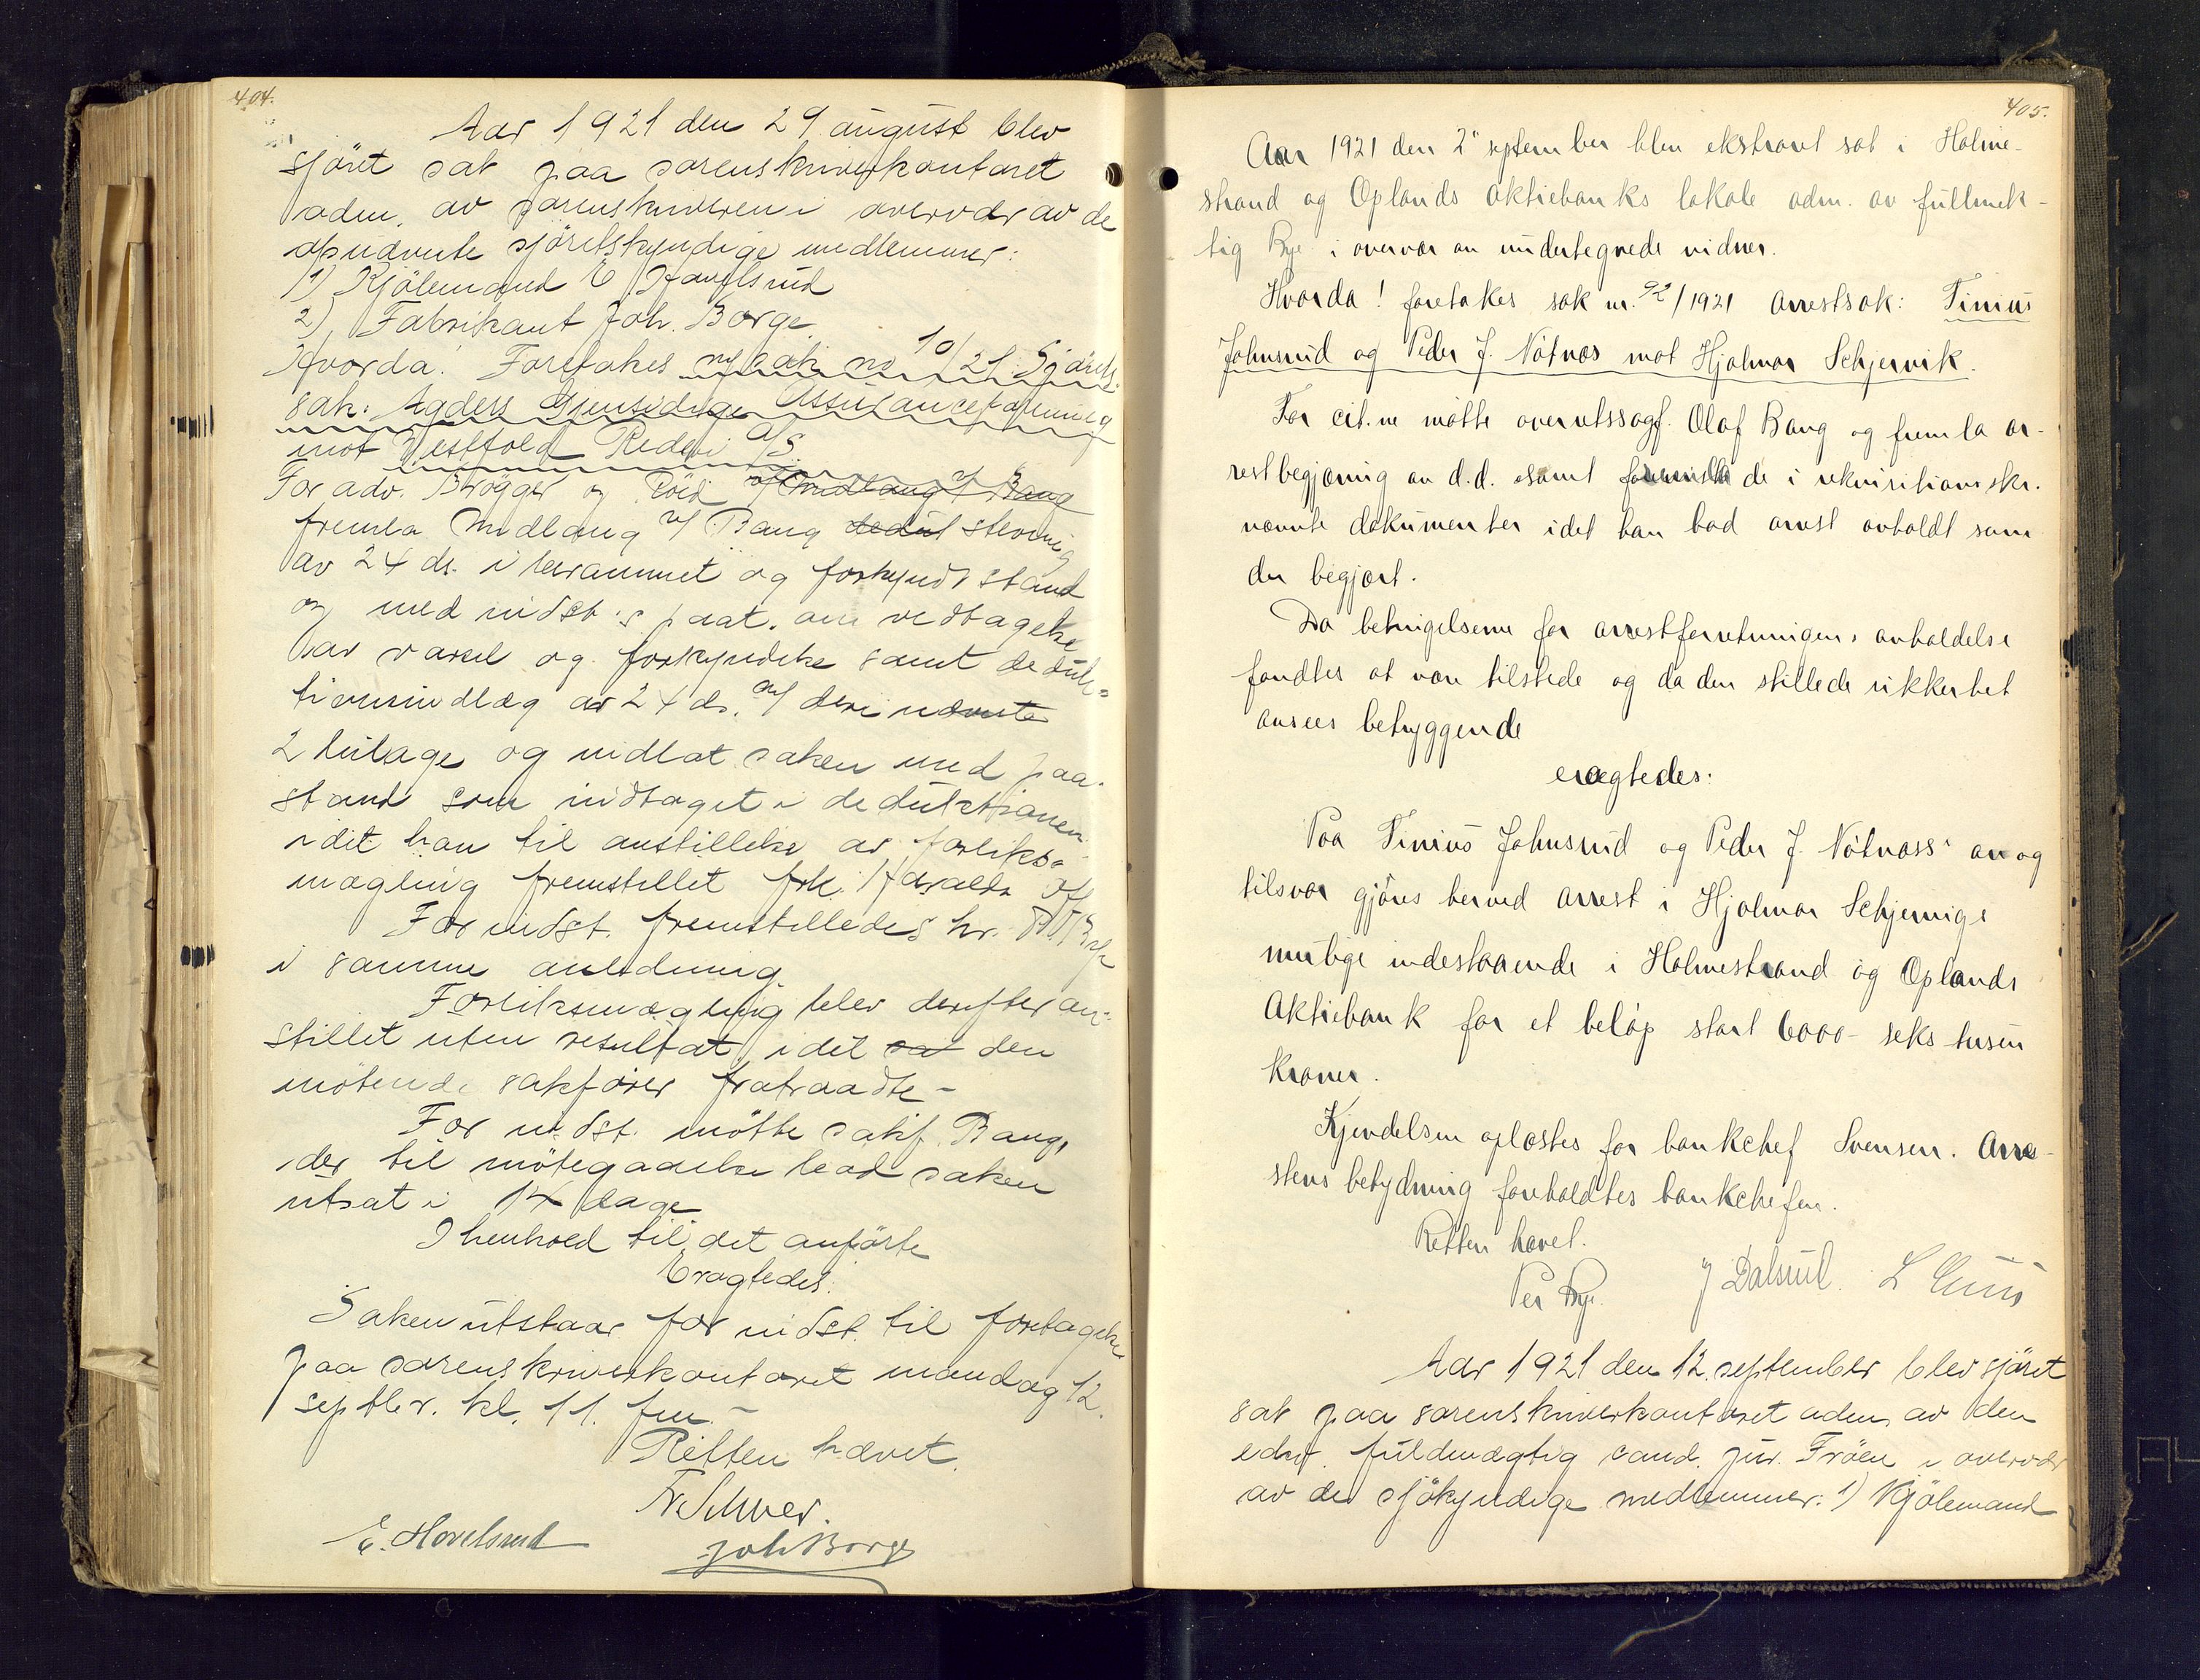 404.
Aar 1921 den 29 august blev
sjöret sat paa sorenskriverkontoret
adm. av sorenskriveren i overvær av de
opnævnte sjöretskyndige medlemmer:
1) Kjölemand E Havelsrud
2) Fabrikant Joh. Borge.
Hvorda! Foretokes ny sak no 10/21: Sjörets-
sak: Agders Gjensidige Assuranceforening
mot Vestfold Rederi A/S.
For adv. Brögger og Röed
fremla Midlang v/ Bang stevning
av 24 ds. i berammet og forkyndt stand
og med indst.s paat. om vedtagelse
av varsel og forkyndelse samt deduk-
tionsindlæg av 24 ds. m/ deri nævnte
2 bilage og indlot saken med paa-
stand som indtaget i deduktionen
idet han til anstillelse av forliks-
mægling fremstillet frk.
For indst. fremstilledes hr.
i samme anledning
Forliksmægling blev derefter an-
stillet uten resultat, idet den
mötende sakförer fratraadte -
For indst. mötte sakf. Bang,
der til mötegaaelse bad saken
utsat i 14 dage
I henhold til det anförte
Eragtedes:
Saken utstaar for indst. til foretagelse
paa sorenskriverkontoret mandag 12.
septbr. kl. 11. fm. -
Retten hævet.
E. Hovelsrud Joh Borge
405.
Aar 1921 den 2' september blev ekstraret sat i Holme-
strand og Oplands aktiebanks lokale adm. av fullmek-
tig Rye i overvær av undertegnede vidner.
Hvorda! foretokes sak nr. 92/1921 Arrestsak: Tinius
Johnsrud og Peder J. Nötnæs mot Hjalmar Schjervik.
For cit.ne mötte overretssagf. Olaf Bang og fremla ar-
restbegjæring av d.d. samt de i rekvisitionsskr.
nævnte dokumenter idet han bad arrest avholdt som
der begjært.
Da betingelserne for arrestforretningens avholdelse
fandtes at være tilstede og da den stillede sikkerhet
ansees betryggende
eragtedes:
Paa Tinius Johnsrud og Peder J. Nötnæss' an og
tilsvar gjöres herved arrest i Hjalmar Schjervigs
mulige indestaaende i Holmestrand og Oplands
Aktiebank for et belöp stort 6000 - seks tusen
kroner.
Kjendelsen oplæstes for bankchef Svensen. Arre-
stens betydning foreholdtes bankchefen.
Retten hævet.
Per Rye. J Dalsrud.
Aar 1921 den 12. september blev sjöret
sat paa sorenskriverkontoret adm. av den
edsv. fuldmægtig cand. jur. Fröen i overvær
av de sjökyndige medlemmer: 1) Kjölemand